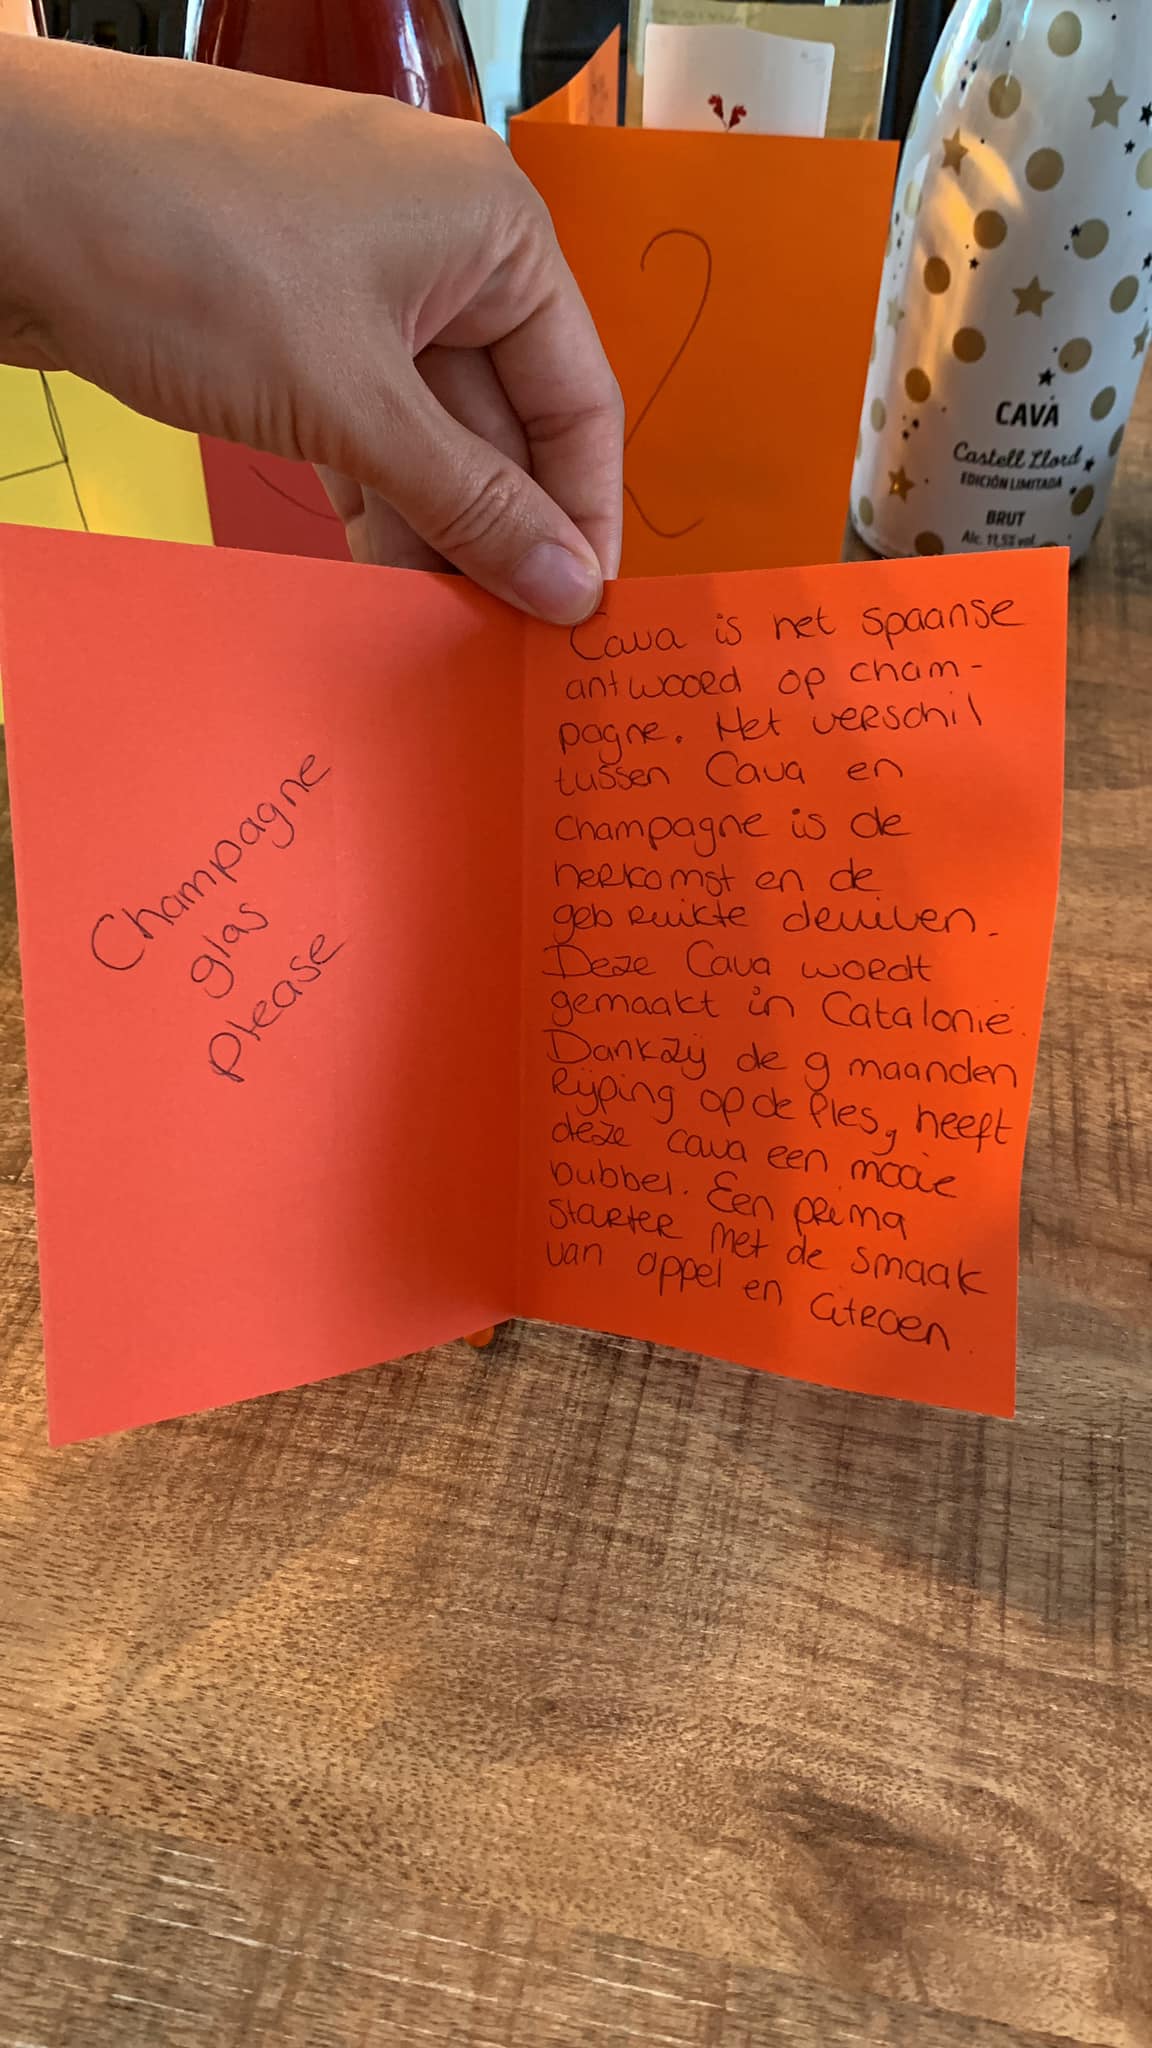 2
CAVA
Castell Llord
EDICIÓN LIMITADA
BRUT
Alc. 11,5% vol.
Champagne
glas
please
Cava is het spaanse
antwoord op cham-
pagne. Het verschil
tussen Cava en
Champagne is de
herkomst en de
gebruikte druiven.
Deze Cava wordt
gemaakt in Catalonië.
Dankzij de 9 maanden
Rijping op de fles, heeft
deze cava een mooie
bubbel. Een prima
starter met de smaak
van appel en citroen.